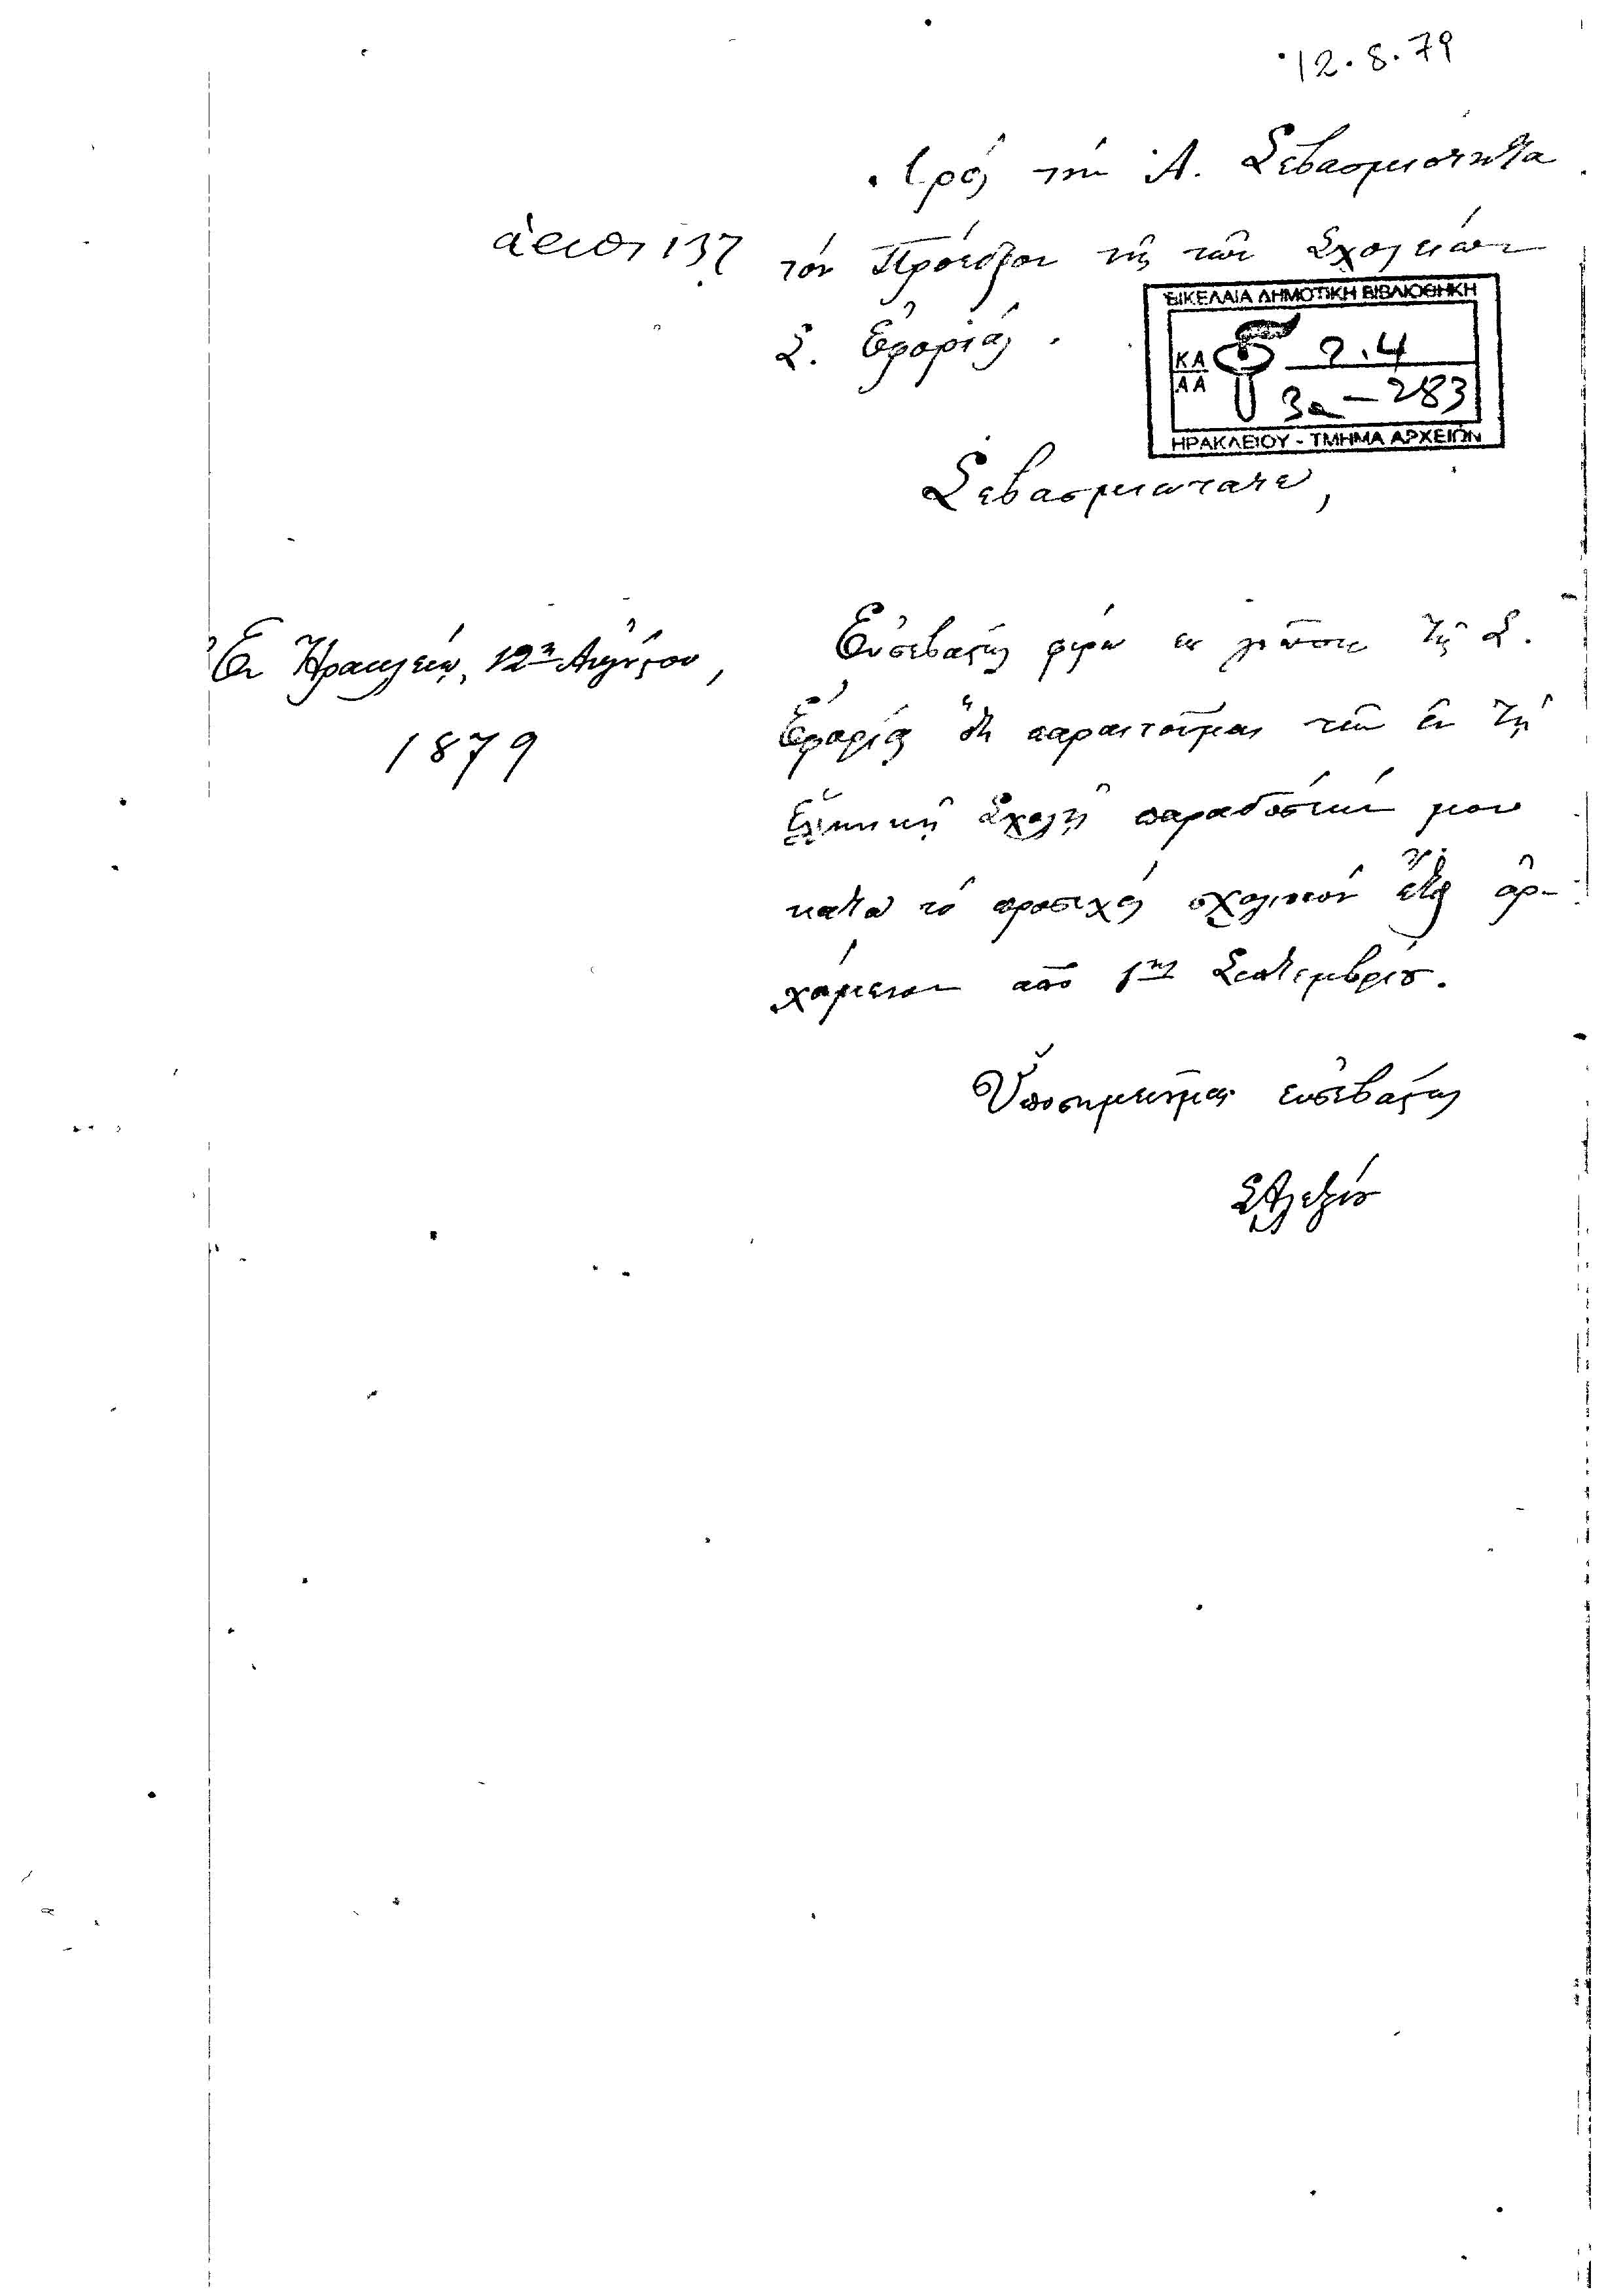 12.8.79
Πρὸς τὴν Α. Σεβασμιότητα
ἀριθ. 137
τὸν Πρόεδρον τῆς τῶν Σχολείων
Σ. Ἐφορίας.
ΒΙΚΕΛΑΙΑ ΔΗΜΟΤΙΚΗ ΒΙΒΛΙΟΘΗΚΗ
ΚΑ 2.4
ΑΑ 3α-283
ΗΡΑΚΛΕΙΟΥ - ΤΜΗΜΑ ΑΡΧΕΙΩΝ
Σεβασμιώτατε,
Ἐν Ἡρακλείῳ, 12ῃ Αὐγούστου,
1879
Εὐσεβάστως φέρω εἰς γνῶσιν τῆς Σ.
Ἐφορίας ὅτι παραιτοῦμαι τῶν ἐν τῇ
Ἑλληνικῇ Σχολῇ παραδόσεών μου
κατὰ τὸ προσεχὲς σχολικὸν ἔτος ἀρ-
χόμενον ἀπὸ 1ης Σεπτεμβρίου.
Ὑποσημειοῦμαι εὐσεβάστως
ΣΑλεξίου